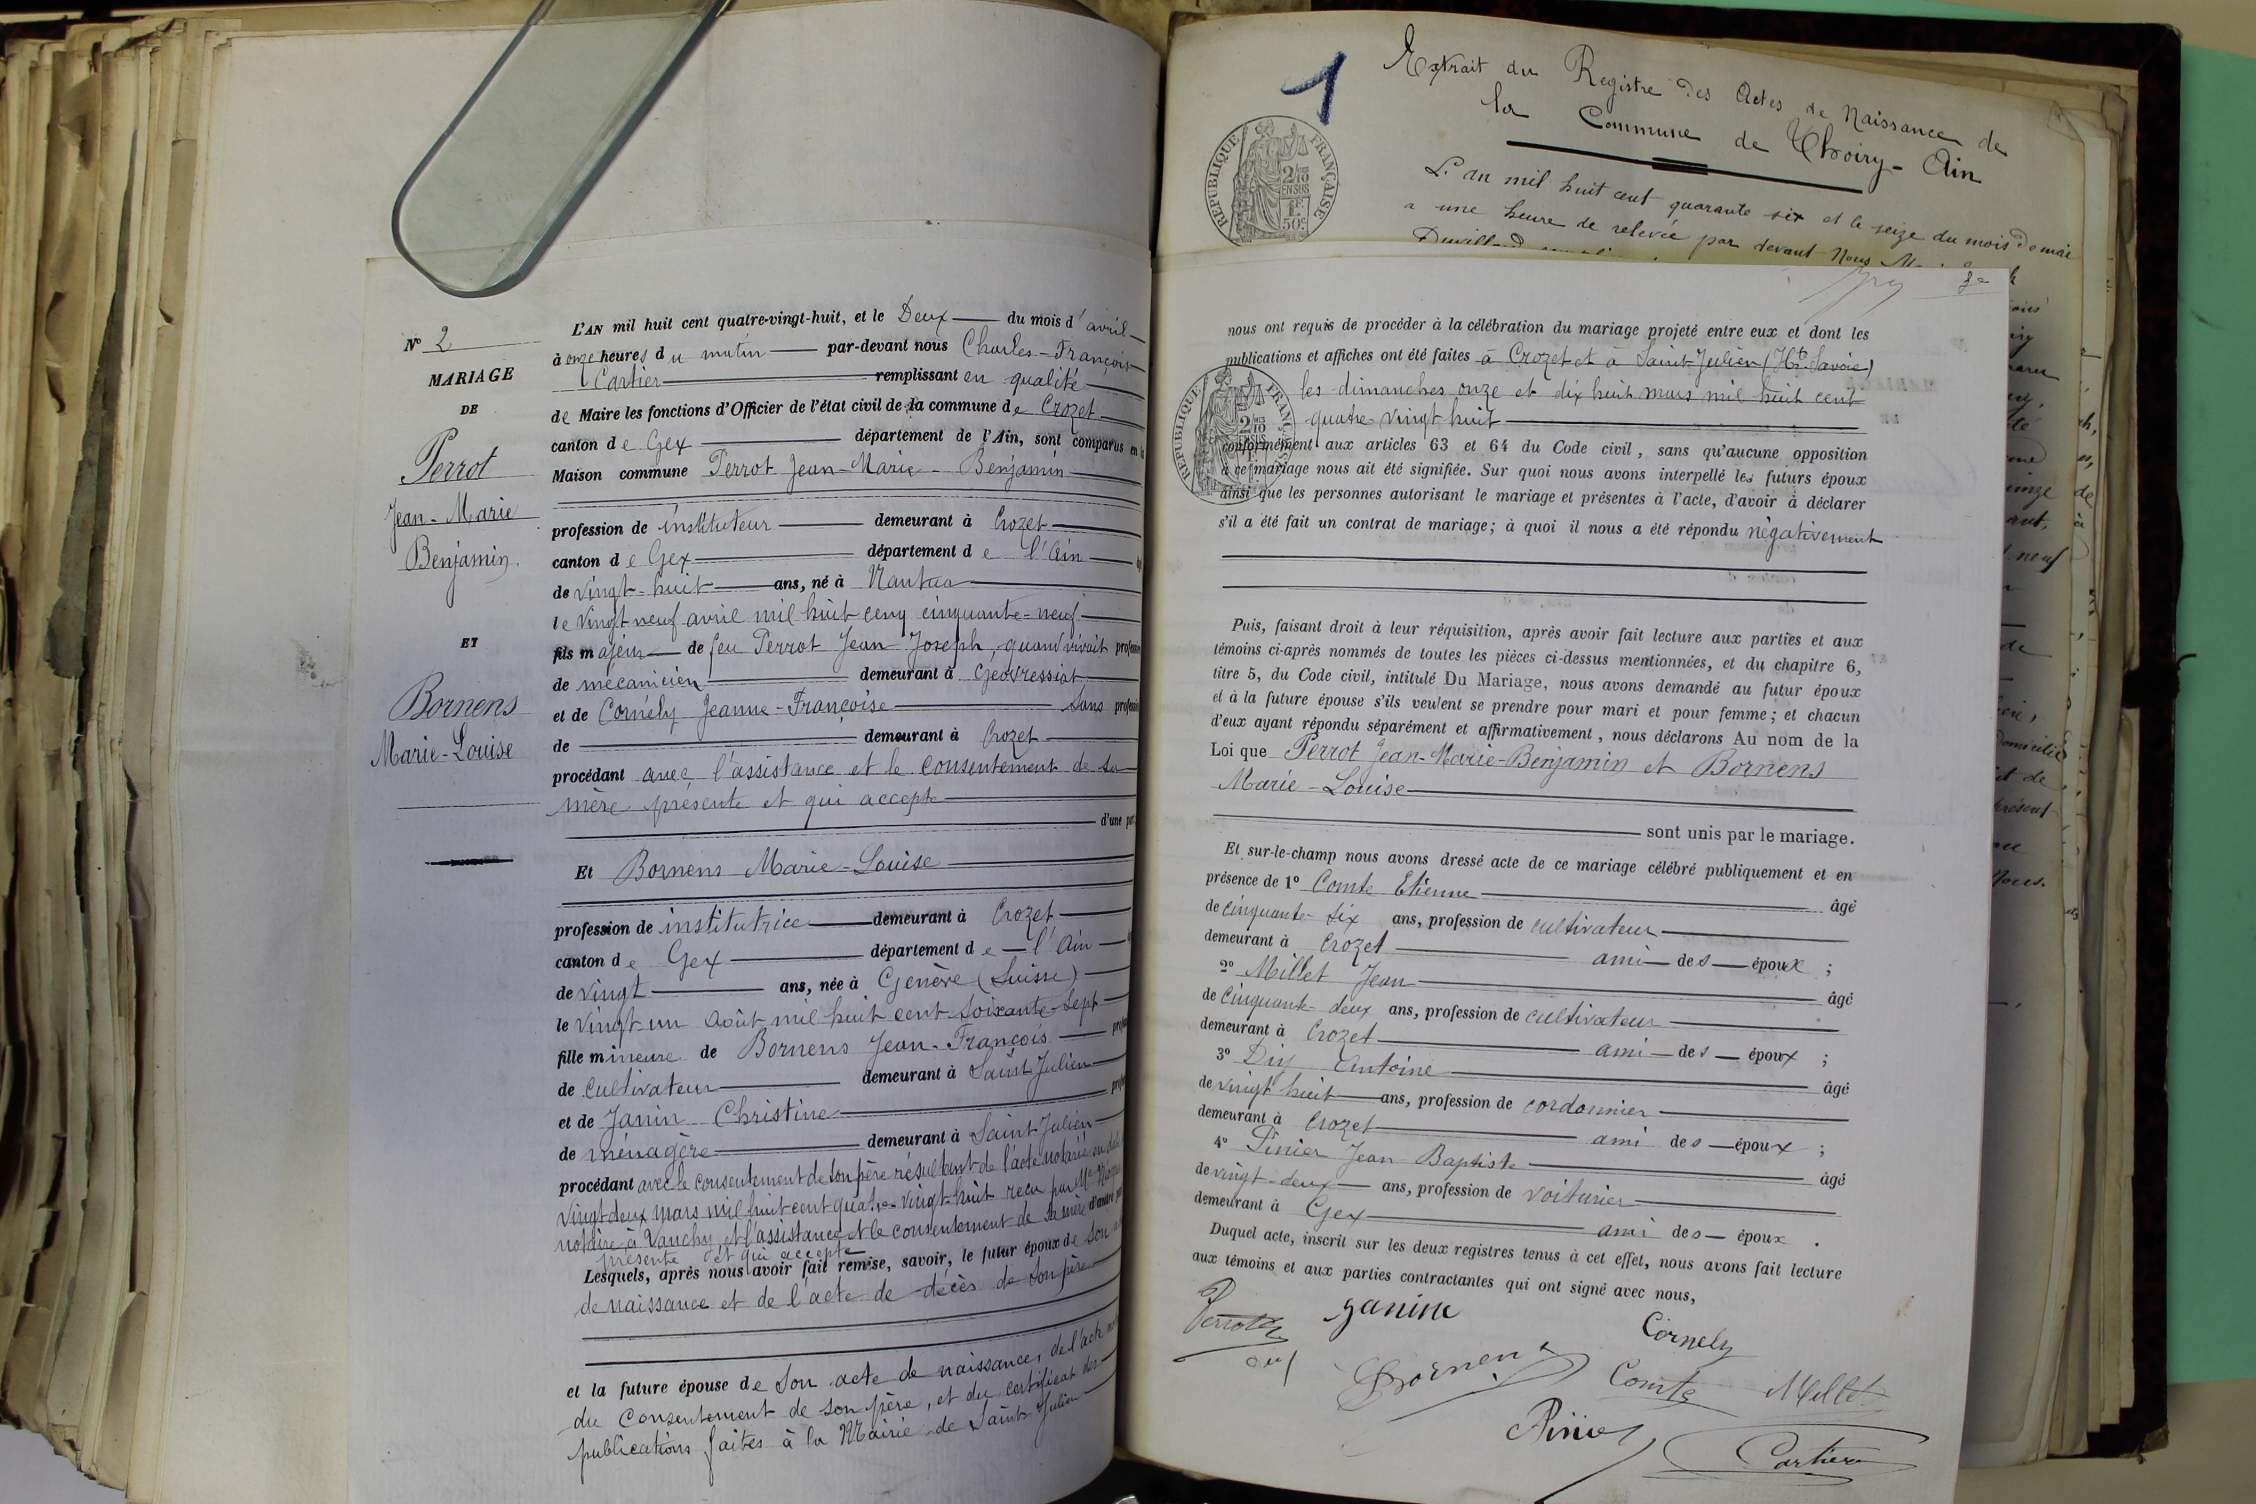 N° 2
MARIAGE
DE
Perrot
Jean-Marie
Benjamin.
ET
Bornens
Marie-Louise
L'AN mil huit cent quatre-vingt-huit, et le Deux du mois d'avril
à onze heures du matin par-devant nous Charles-François
Cartier remplissant en qualité
de Maire les fonctions d'Officier de l'état civil de la commune de Crozet
canton de Gex département de l'Ain, sont comparus en la
Maison commune Perrot Jean-Marie-Benjamin
profession de instituteur demeurant à Crozet
canton de Gex département de l'Ain
de vingt-huit ans, né à Nantua
le vingt neuf avril mil huit cenq cinquante-neuf
fils majeur de feu Perrot Jean Joseph, quand vivait profession
de mécanicien demeurant à Géovressiat
et de Cornély Jeanne-Françoise sans profession
de demeurant à Crozet
procédant avec l'assistance et le consentement de sa
mère présente et qui accepte
d'une part
Et Bornens Marie-Louise
profession de institutrice demeurant à Crozet
canton de Gex département de l'Ain
de vingt ans, née à Genève (Suisse)
le vingt un août mil huit cent soixante-sept
fille mineure de Bornens Jean-François
de cultivateur demeurant à Saint Julien
et de Janin Christine
de ménagère demeurant à Saint Julien
procédant avec le consentement de son père résultant de l'acte notarié
vingt deux mars mil huit cent quatre-vingt-huit reçu par Me
notaire à Vanchy et l'assistance et le consentement de sa mère d'autre part
présente et qui accepte
Lesquels, après nous avoir fait remise, savoir, le futur époux de son
de naissance et de l'acte de décès de son père
et la future épouse de son acte de naissance, de l'acte
du consentement de son père, et du certificat des
publications faites à la Mairie de Saint Julien
1
Extrait du Registre des Actes de Naissance de
la Commune de Thoiry-Ain
L'an mil huit cent quarante six et le seize du mois de mai
a une heure de relevée par devant Nous
RÉPUBLIQUE FRANÇAISE
2/10
EN SUS
1F
50c
nous ont requis de procéder à la célébration du mariage projeté entre eux et dont les
publications et affiches ont été faites à Crozet et à Saint-Julien (Hte Savoie)
les dimanches onze et dix huit mars mil huit cent
quatre vingt huit
conformément aux articles 63 et 64 du Code civil, sans qu'aucune opposition
à ce mariage nous ait été signifiée. Sur quoi nous avons interpellé les futurs époux
ainsi que les personnes autorisant le mariage et présentes à l'acte, d'avoir à déclarer
s'il a été fait un contrat de mariage; à quoi il nous a été répondu négativement
Puis, faisant droit à leur réquisition, après avoir fait lecture aux parties et aux
témoins ci-après nommés de toutes les pièces ci-dessus mentionnées, et du chapitre 6,
titre 5, du Code civil, intitulé Du Mariage, nous avons demandé au futur époux
et à la future épouse s'ils veulent se prendre pour mari et pour femme; et chacun
d'eux ayant répondu séparément et affirmativement, nous déclarons Au nom de la
Loi que Perrot Jean-Marie-Benjamin et Bornens
Marie-Louise
sont unis par le mariage.
Et sur-le-champ nous avons dressé acte de ce mariage célébré publiquement et en
présence de 1° Comte Etienne âgé
de cinquante-six ans, profession de cultivateur
demeurant à Crozet ami des époux ;
2° Millet Jean âgé
de cinquante deux ans, profession de cultivateur
demeurant à Crozet ami des époux ;
3° Antoine âgé
de vingt huit ans, profession de cordonnier
demeurant à Crozet ami des époux ;
4° Pinier Jean Baptiste âgé
de vingt-deux ans, profession de voiturier
demeurant à Gex ami des époux .
Duquel acte, inscrit sur les deux registres tenus à cet effet, nous avons fait lecture
aux témoins et aux parties contractantes qui ont signé avec nous,
Perrot ganine Cornely
Bornens Comte Millet
Pinier Cartier